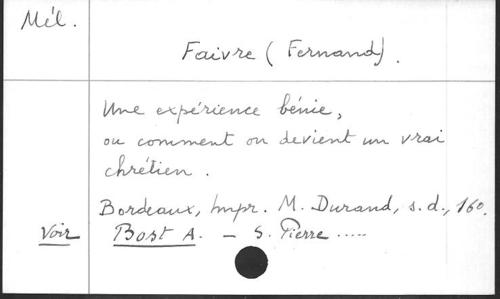 Mél.
Faivre (Fernand).
Une expérience bénie,
ou comment on devient un vrai
chrétien.
Bordeaux, Impr. M. Durand, s.d., 16o.
Voir Bost A. — S. Pierre .....